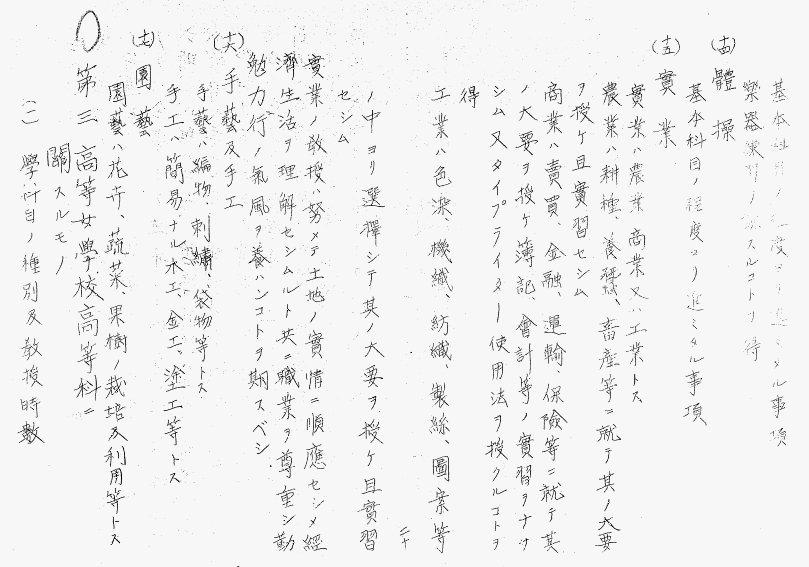 基本科目ノ程度ヨリ進ミタル事項
樂器練習ノ課スルコトヲ得
(十四) 體操
基本科目ノ程度ヨリ進ミタル事項
(十五) 實業
實業ハ農業、商業又ハ工業トス
農業ハ耕種、養蠶、畜産等ニ就テ其ノ大要
ヲ授ケ且實習セシム
商業ハ賣買、金融、運輸、保險等ニ就テ其
ノ大要ヲ授ケ簿記、會計等ノ實習ヲナサ
シム又タイプライター使用法ヲ授クルコトヲ
得
工業ハ色染、機織、紡織、製絲、圖案等
二十
ノ中ヨリ選擇シテ其ノ大要ヲ授ケ且實習
セシム
實業ノ敎授ハ努メテ土地ノ實情ニ順應セシメ經
濟生活ヲ理解セシムルト共ニ職業ヲ尊重シ勤
勉力行ノ氣風ヲ養ハンコトヲ期スベシ
(十六) 手藝及手工
手藝ハ編物、刺繡、袋物等トス
手工ハ簡易ナル木工、金工、塗工等トス
(十七) 園藝
園藝ハ花卉、蔬菜、果樹ノ栽培及利用等トス
第三 高等女學校高等科ニ
關スルモノ
(一) 學科目ノ種別及敎授時數